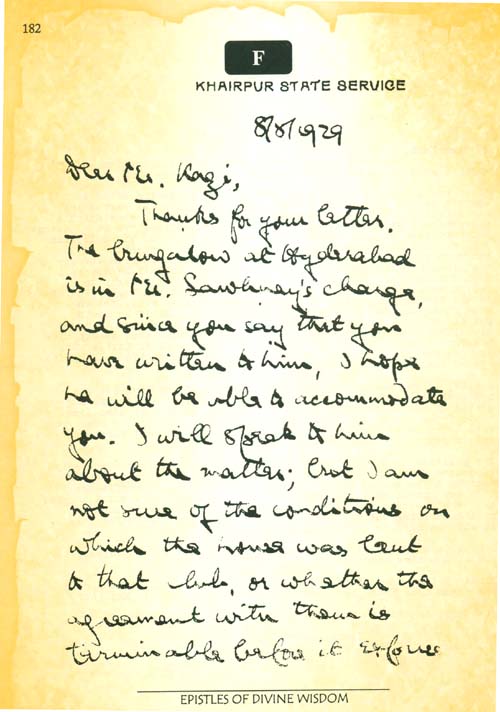 182
F
KHAIRPUR STATE SERVICE
8/8/1929
Dear Mr. Kazi,
Thanks for your letter.
The bungalow at Hyderabad
is in Mr. Sawhney's charge,
and since you say that you
have written to him, I hope
he will be able to accommodate
you. I will speak to him
about the matter; but I am
not sure of the conditions on
which the house was lent
to that club, or whether the
agreement with them is
terminable before it expires
EPISTLES OF DIVINE WISDOM